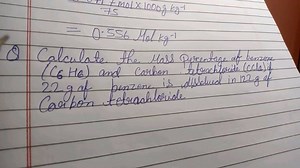 mol x 1000 g kg⁻¹
75
= 0.556 Mol kg⁻¹
Q Calculate the Mass Percentage of benzene
(C6 H6) and carbon tetrachloride (CCl4) if
22 g of benzene is dissolved in 122 g of
Carbon tetrachloride